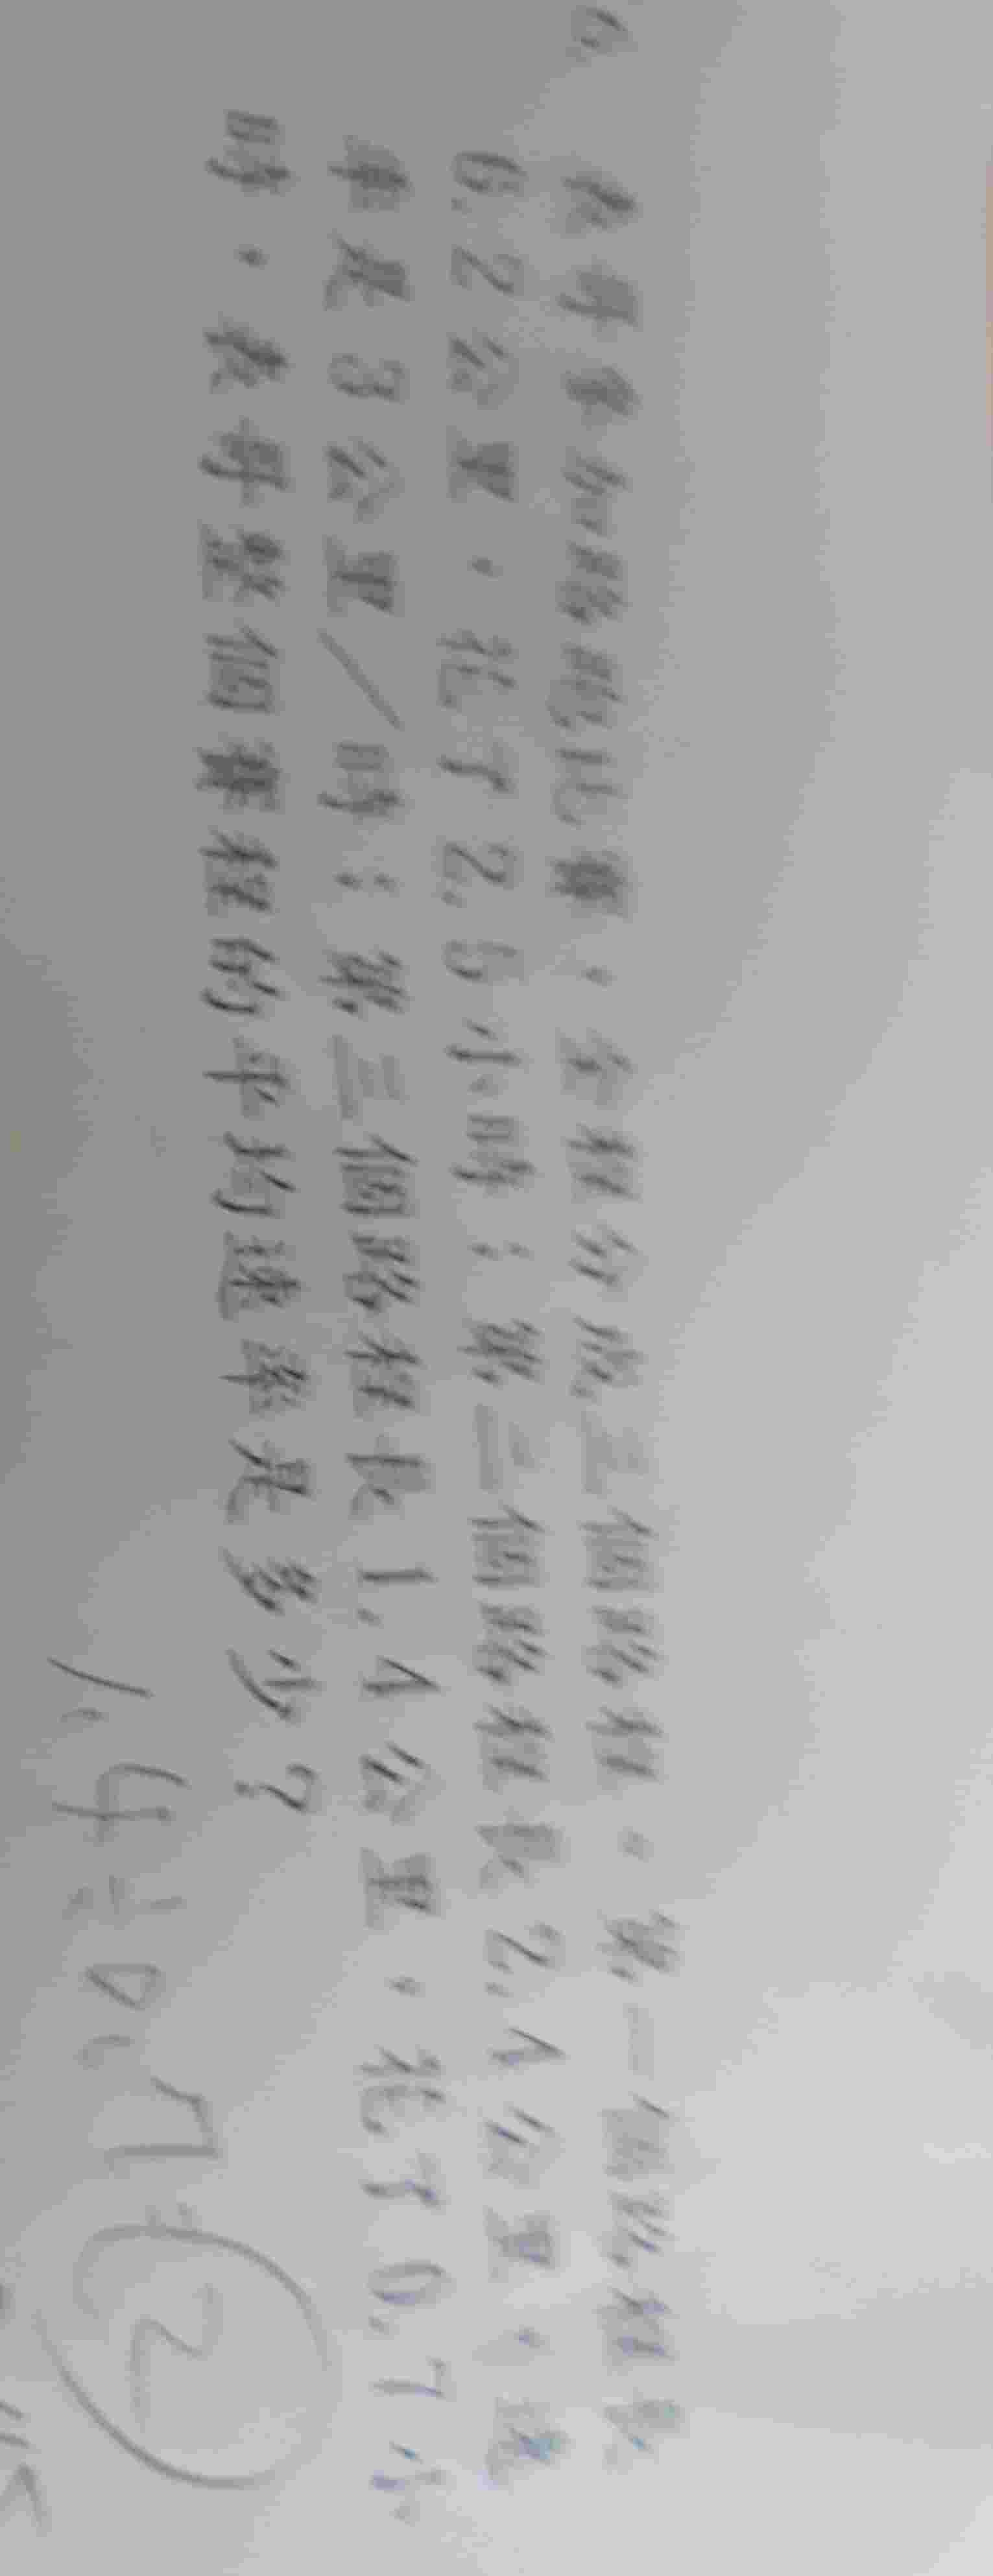 6.
參加路跑比賽，全程分成三個路程。第一個路程是
6.2公里，花了2.5小時；第二個路程長2.4公里，速
率是3公里/時；第三個路程長1.4公里，花了0.7小
時。整個賽程的平均速率是多少？
1.4÷0.7=2